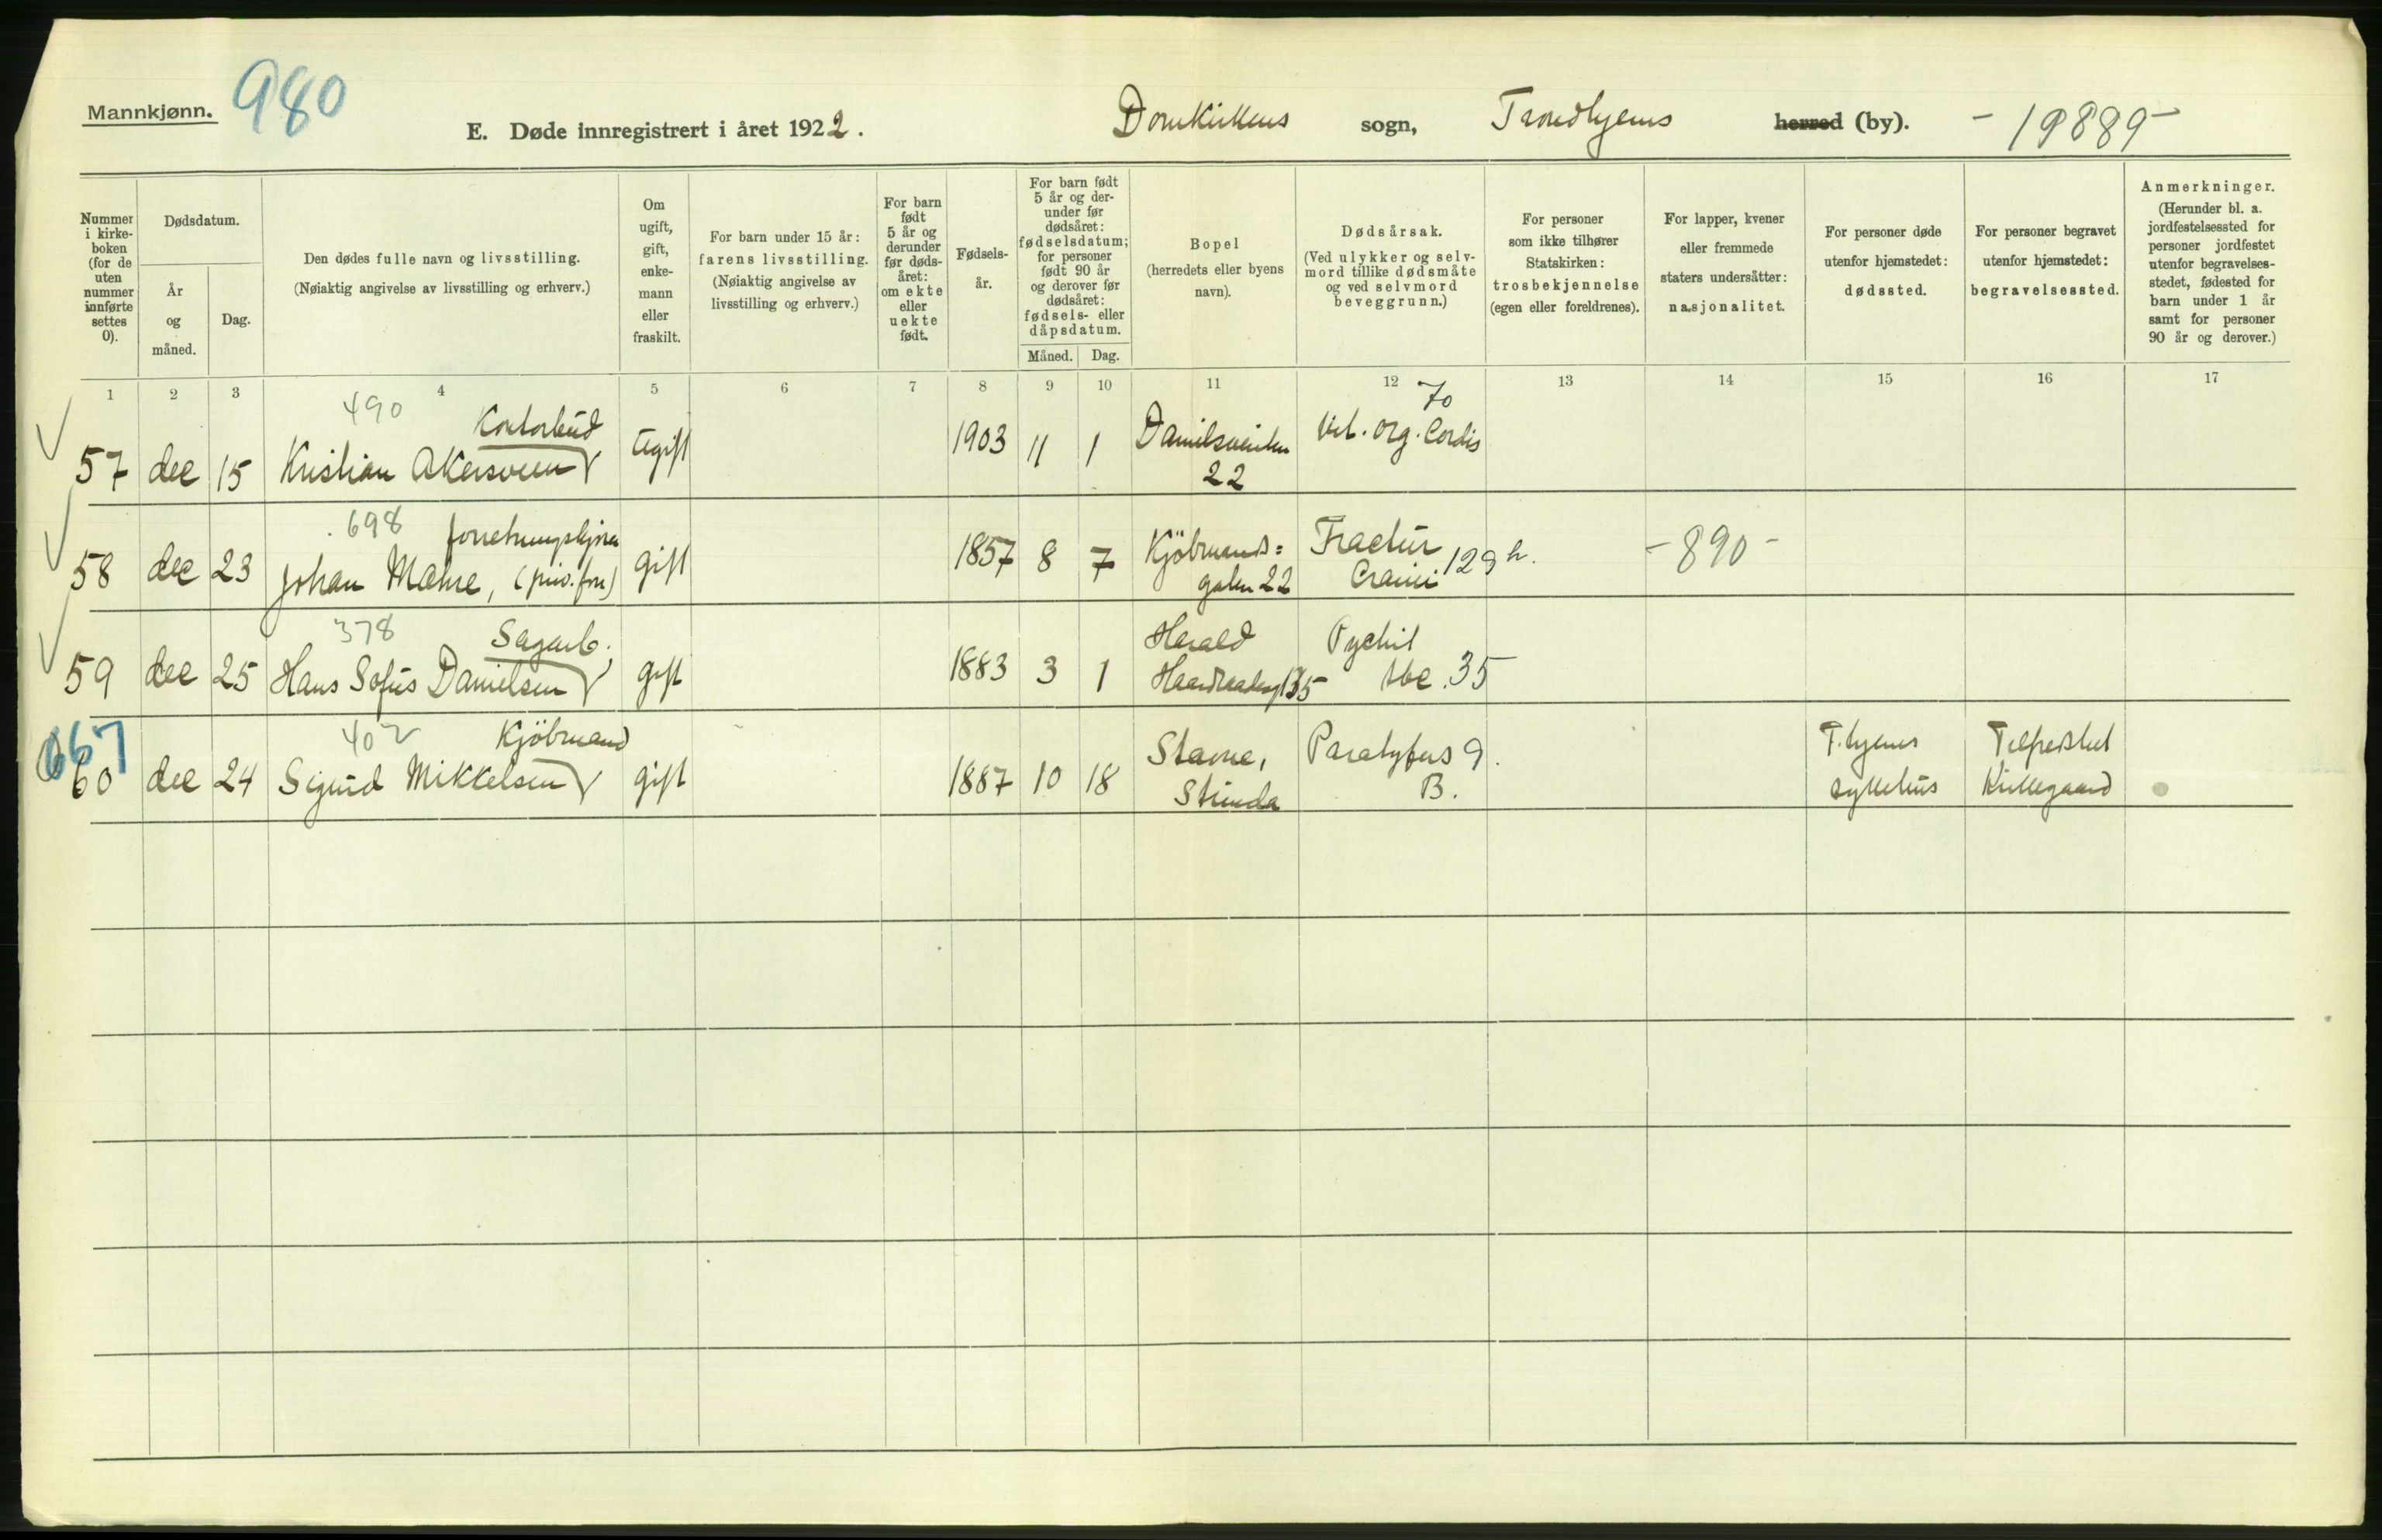 Mannkjønn. 980
E. Døde innregistrert i året 1922.
Domkirkens sogn, Trondhjems herred (by). - 19889 -
Nummer i kirke-boken (for de uten nummer innførte settes 0).
Dødsdatum.
År og måned.
Dag.
Den dødes fulle navn og livsstilling.
(Nøiaktig angivelse av livsstilling og erhverv.)
Om ugift, gift, enke-mann eller fraskilt.
For barn under 15 år:
farens livsstilling.
(Nøiaktig angivelse av
livsstilling og erhverv.)
For barn født 5 år og derunder før døds-året: om ekte eller uekte født.
Fødsels-år.
For barn født 5 år og der-under før dødsåret: fødselsdatum; for personer født 90 år og derover før dødsåret: fødsels- eller dåpsdatum.
Måned. Dag.
Bopel
(herredets eller byens
navn).
Dødsårsak.
(Ved ulykker og selv-
mord tillike dødsmåte
og ved selvmord
beveggrunn.)
For personer
som ikke tilhører
Statskirken:
trosbekjennelse
(egen eller foreldrenes).
For lapper, kvener
eller fremmede
staters undersåtter:
nasjonalitet.
For personer døde
utenfor hjemstedet:
dødssted.
For personer begravet
utenfor hjemstedet:
begravelsessted.
Anmerkninger.
(Herunder bl. a.
jordfestelsessted for
personer jordfestet
utenfor begravelses-
stedet, fødested for
barn under 1 år
samt for personer
90 år og derover.)
1 2 3 4 5 6 7 8 9 10 11 12 13 14 15 16 17
490 Kontorbud 70
57 dec 15 Kristian Akersveen ugift 1903 11 1 Danielsveiten 22 Vit. org. Cordis
698
58 dec 23 Johan Mahre, gift 1857 8 7 Kjöbmands=
gaten 22 Fractur
Cranii 129 h. - 890 -
378 Sagarb.
59 dec 25 Hans Sofus Danielsen gift 1883 3 1 Harald
Haardraadesg 135 tbc. 35
667
402 Kjöbmand
60 dec 24 Sigurd Mikkelsen gift 1887 10 18 Stavne,
Strinda Paratyfus 9.
B. T.hjems
sykehus Tilfredshet
Kirkegaard